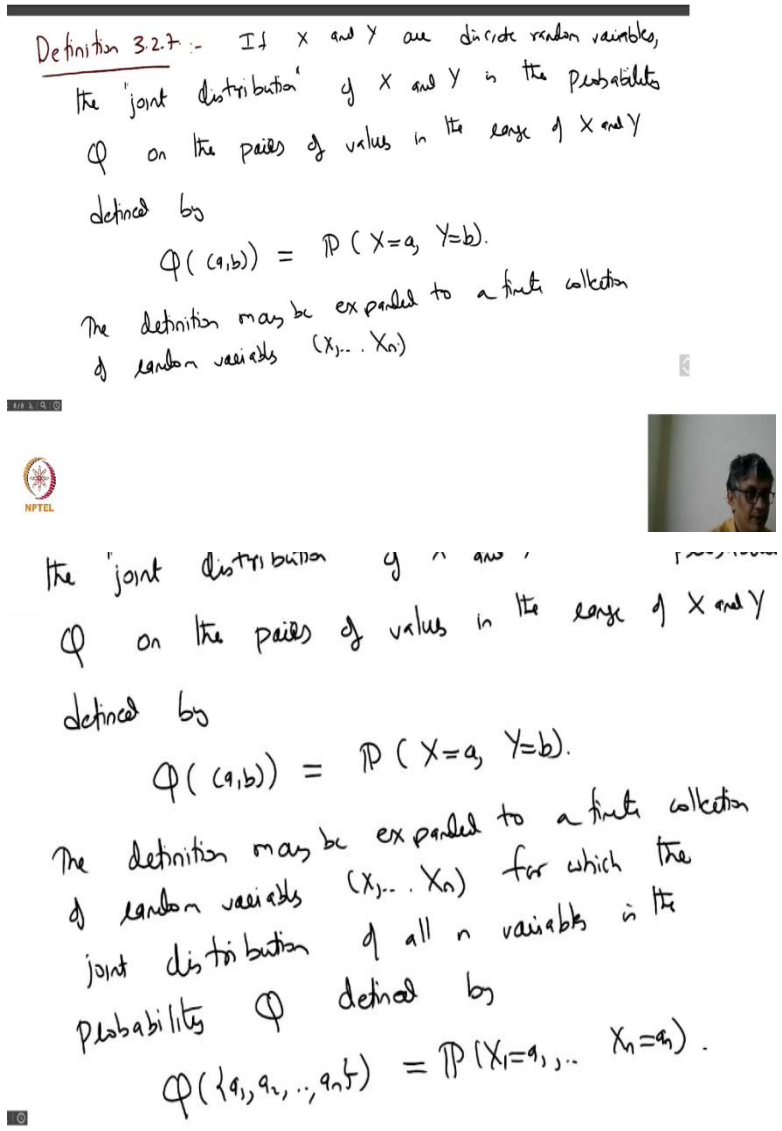 Definition 3.2.7 :- If X and Y are discrete random variables,
the "joint distribution" of X and Y is the probability
Q on the pairs of values in the range of X and Y
defined by
Q((a,b)) = ℙ(X=a, Y=b).
The definition may be expanded to a finite collection
of random variables (X,... Xn)
NPTEL
the joint distribution of X and Y
Q on the pairs of values in the range of X and Y
defined by
Q((a,b)) = ℙ(X=a, Y=b).
The definition may be expanded to a finite collection
of random variables (X,... Xn) for which the
joint distribution of all n variables is the
probability Q defined by
Q({a1, a2, .., an}) = ℙ(X1=a1, .. Xn=an).